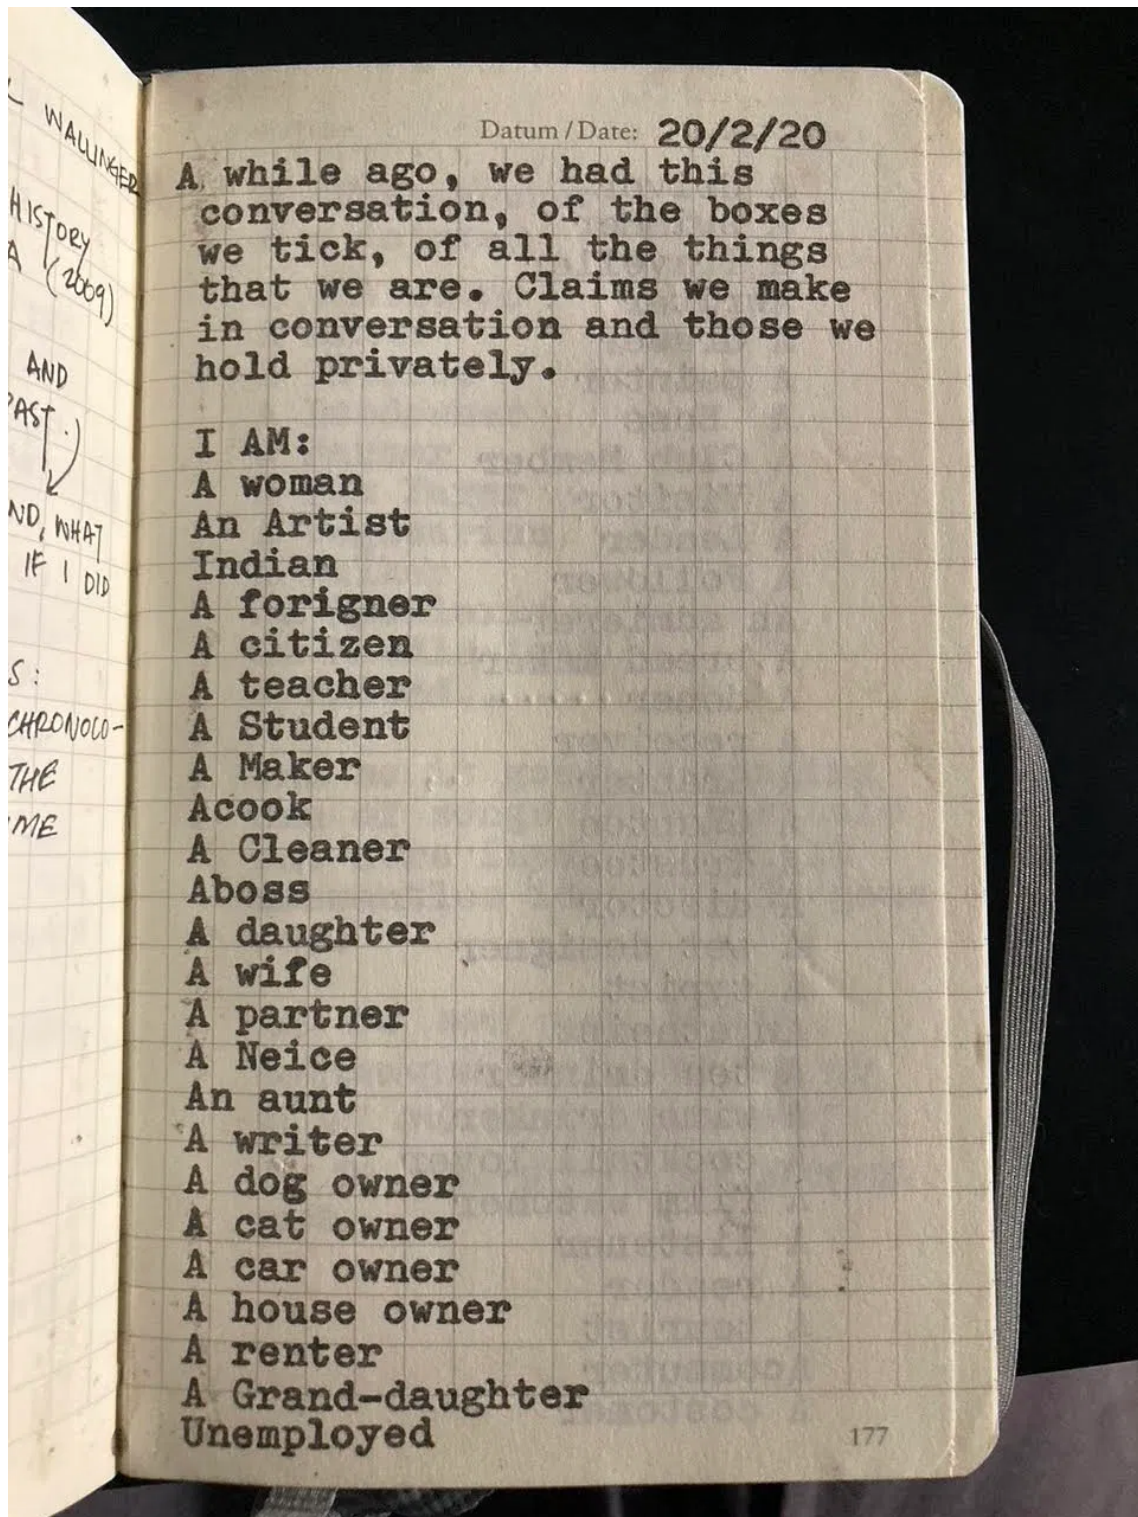 WALLINGER
HISTORY
A (2009)
AND
PAST.)
AND, WHAT
IF I DID
S:
CHRONOLO-
THE
ME
Datum / Date: 20/2/20
A while ago, we had this
conversation, of the boxes
we tick, of all the things
that we are. Claims we make
in conversation and those we
hold privately.
I AM:
A woman
An Artist
Indian
A forigner
A citizen
A teacher
A Student
A Maker
Acook
A Cleaner
Aboss
A daughter
A wife
A partner
A Neice
An aunt
A writer
A dog owner
A cat owner
A car owner
A house owner
A renter
A Grand-daughter
Unemployed
177